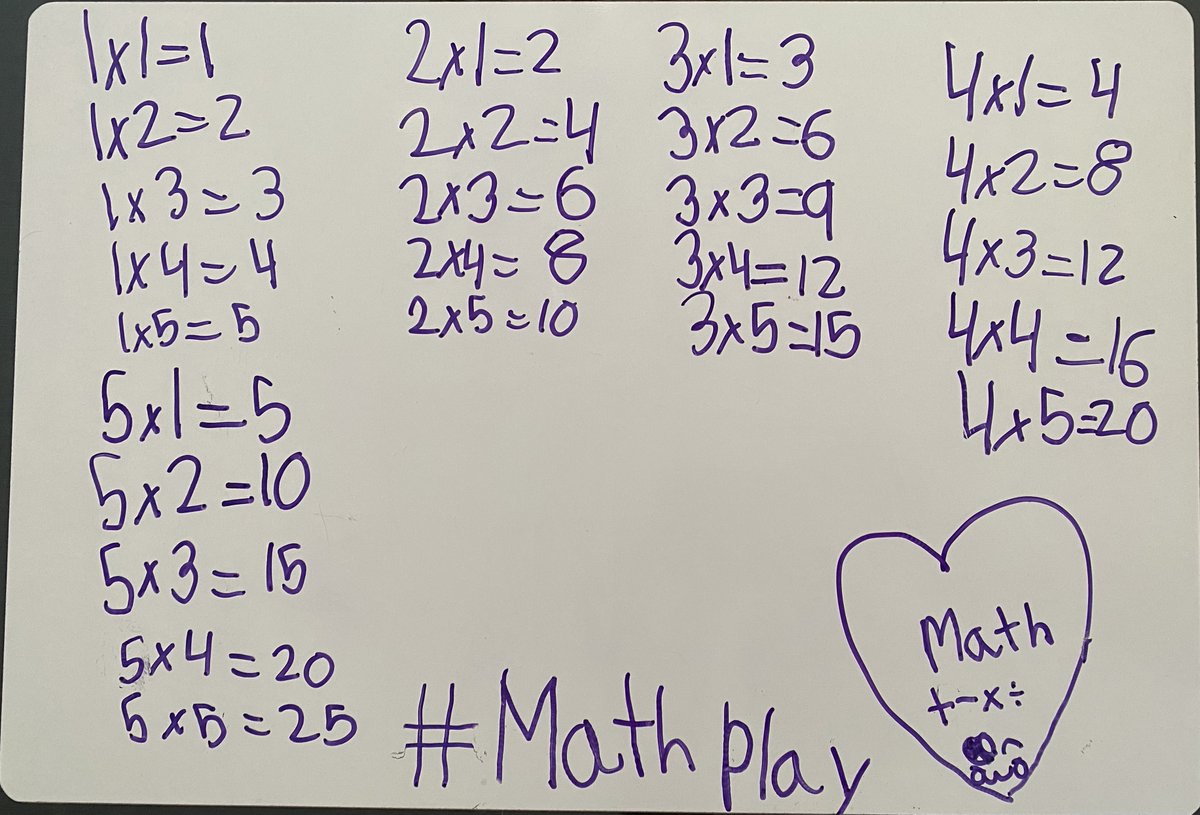 1x1=1
1x2=2
1x3=3
1x4=4
1x5=5
5x1=5
5x2=10
5x3=15
5x4=20
5x5=25
2x1=2
2x2=4
2x3=6
2x4=8
2x5=10
3x1=3
3x2=6
3x3=9
3x4=12
3x5=15
4x1=4
4x2=8
4x3=12
4x4=16
4x5=20
#Math play
Math
+-x÷